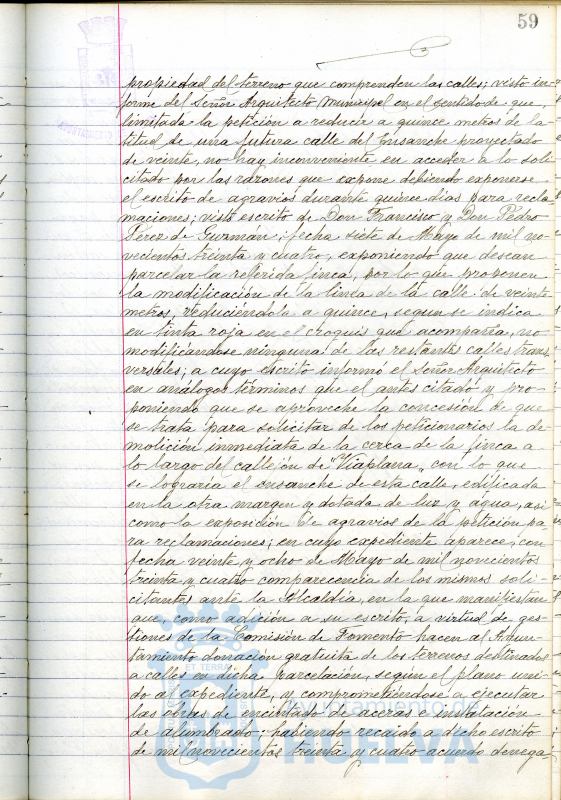 59
propiedad del terreno que comprenden las calles; visto in-
forme del Señor Arquitecto Municipal en el sentido de que,
limitada la petición a reducir a quince metros de la-
titud de una futura calle del Ensanche proyectado
de veinte, no hay inconveniente en acceder a lo soli-
citado por las razones que expone debiendo exponerse
el escrito de agravios durante quince dias para recla-
maciones; visto escrito de Don Francisco y Don Pedro
Pérez de Guzmán, fecha siete de Mayo de mil no-
vecientos treinta y cuatro, exponiendo que desean
parcelar la referida finca, por lo que proponen
la modificación de la linea de la calle de veinte
metros, reduciéndola a quince, segun se indica
en tinta roja en el croquis que acompaña, no
modificándose ninguna de las restantes calles trans
versales; a cuyo escrito informó el Señor Arquitecto
en análogos términos que el antes citado y pro-
poniendo que se aproveche la concesión de que
se trata para solicitar de los peticionarios la de-
molición inmediata de la cerca de la finca a
lo largo del callejón de "Viaplana" con lo que
se lograría el ensanche de esta calle, edificada
en la otra margen y dotada de luz y agua, asi
como la exposición de agravios de la petición pa
ra reclamaciones; en cuyo expediente aparece, con
fecha veinte y ocho de Mayo de mil novecientos
treinta y cuatro comparecencia de los mismos soli-
citantes ante la Alcaldía, en la que manifiestan
que, como adición a su escrito, a virtud de ges-
tiones de la Comisión de Fomento hacen al Ayun-
tamiento donación gratuita de los terrenos destinados
a calles en dicha parcelación, según el plano uni-
do al expediente, y comprometiéndose a ejecutar
las obras de encintado de aceras e instalación
de alumbrado; habiendo recaido a dicho escrito
de mil novecientos treinta y cuatro acuerdo denega-
Ayuntamiento de
HUELVA